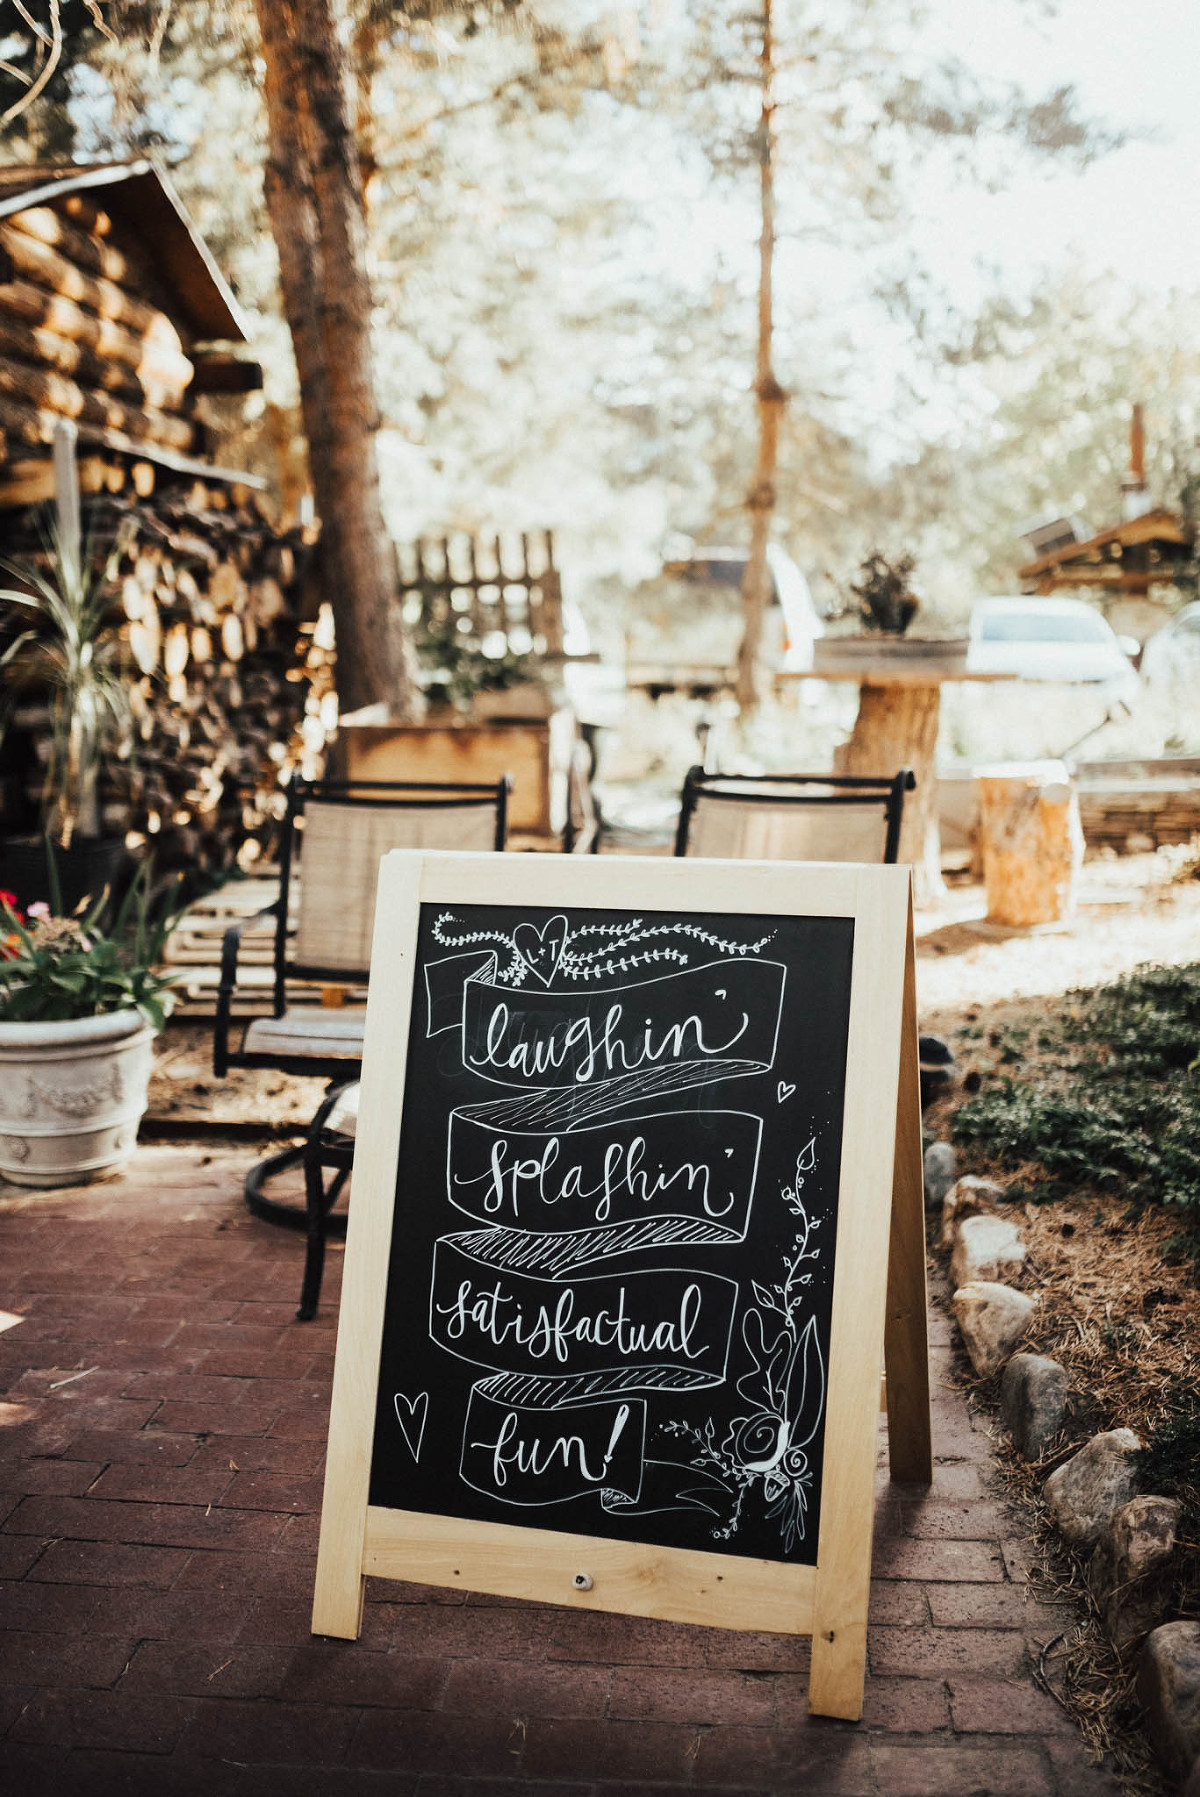 L+T
laughin'
splashin'
satisfactual
fun!